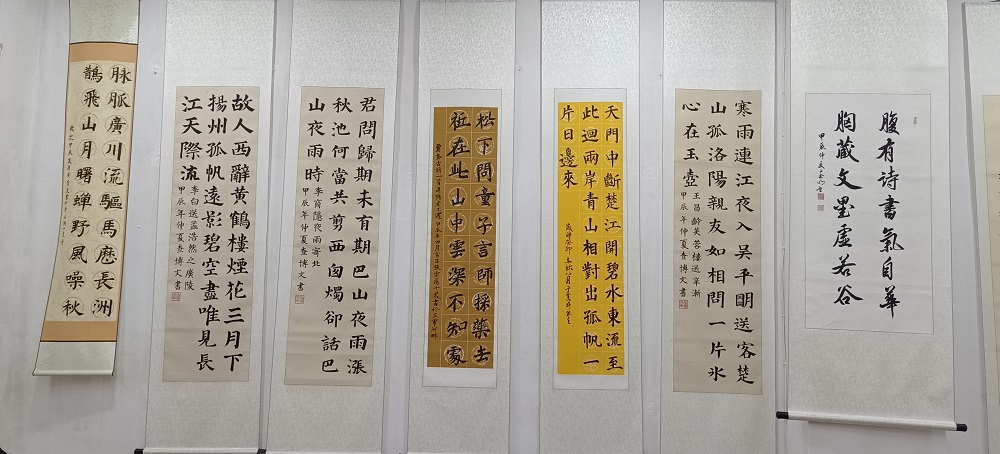 腹有诗書氣自華
胸蔵文墨虛若谷
寒雨連江夜入吳平明送客楚
山孤洛陽親友如相問一片氷
心在玉壺
王昌齡芙蓉樓送辛漸
甲辰年仲夏查博文書
天門中斷楚江開碧水東流至
此迴兩岸青山相對出孤帆一
片日邊來
松下問童子言師採藥去
祗在此山中雲深不知處
君問歸期未有期巴山夜雨漲
秋池何當共剪西窗燭卻話巴
山夜雨時
李商隱夜雨寄北
甲辰年仲夏查博文書
故人西辭黃鶴樓煙花三月下
揚州孤帆遠影碧空盡唯見長
江天際流
李白送孟浩然之廣陵
甲辰年仲夏查博文書
脉脈廣川流驅馬歷長洲
鵲飛山月曙蟬野風噪秋